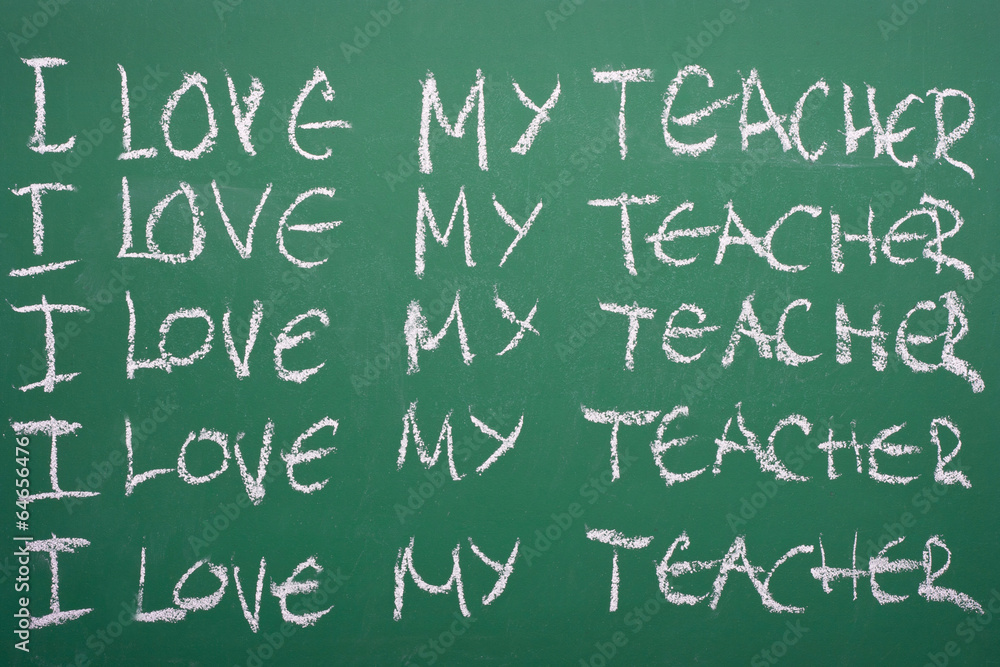 I LOVE MY TEACHER
I LOVE MY TEACHER
I LOVE MY TEACHER
I LOVE MY TEACHER
I LOVE MY TEACHER
Adobe Stock | #64656476